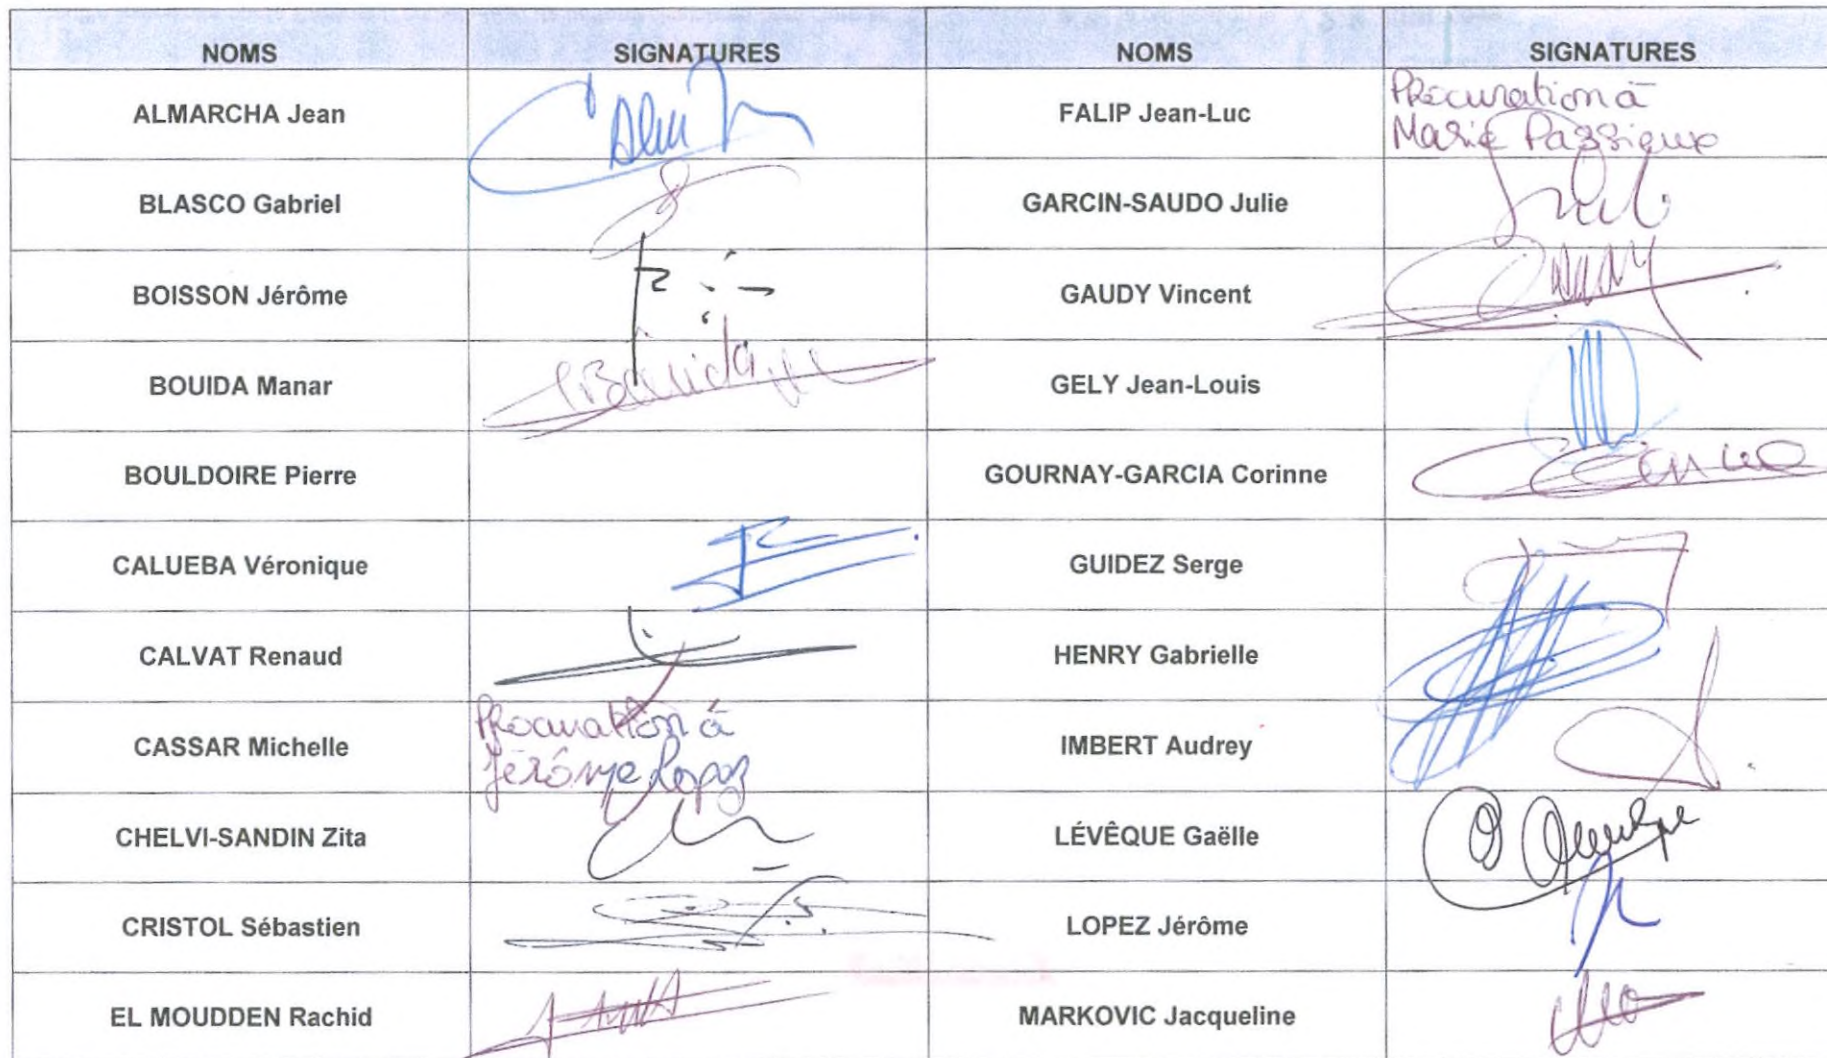 NOMS SIGNATURES NOMS SIGNATURES
ALMARCHA Jean FALIP Jean-Luc Procuration à
Marie Passieux
BLASCO Gabriel GARCIN-SAUDO Julie
BOISSON Jérôme GAUDY Vincent
BOUIDA Manar Bouida GELY Jean-Louis
BOULDOIRE Pierre GOURNAY-GARCIA Corinne
CALUEBA Véronique GUIDEZ Serge
CALVAT Renaud HENRY Gabrielle
CASSAR Michelle Procuration à IMBERT Audrey
Jérôme Lopez
CHELVI-SANDIN Zita LÉVÊQUE Gaëlle
CRISTOL Sébastien LOPEZ Jérôme
EL MOUDDEN Rachid MARKOVIC Jacqueline